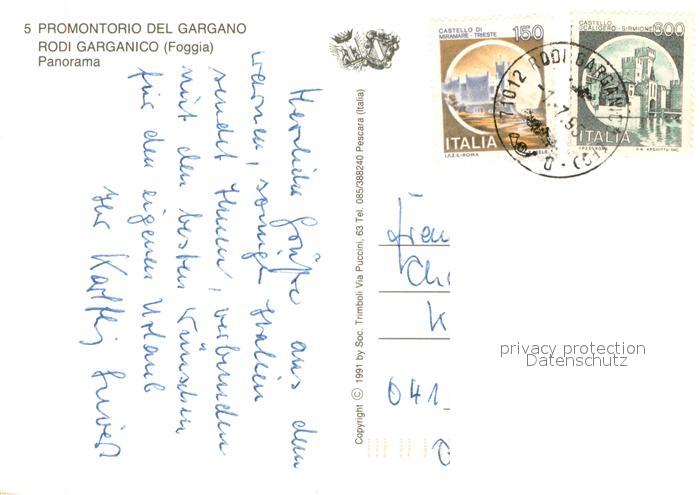 5 PROMONTORIO DEL GARGANO
RODI GARGANICO (Foggia)
Panorama
Herzliche Grüße aus dem
warmen, sonnigen Italien
sendet Ihnen, verbunden
mit den besten Wünschen
für den eigenen Urlaub
Ihr
Copyright © 1991 by Soc. Trimboli Via Puccini, 63 Tel. 085/388240 Pescara (Italia)
CASTELLO DI
MIRAMARE - TRIESTE
150
ITALIA
I.P.Z.S.-ROMA
CASTELLO
SCALIGERO - SIRMIONE
600
ITALIA
I.P.Z.S.-ROMA
71012 RODI GARGANICO
041
privacy protection
Datenschutz